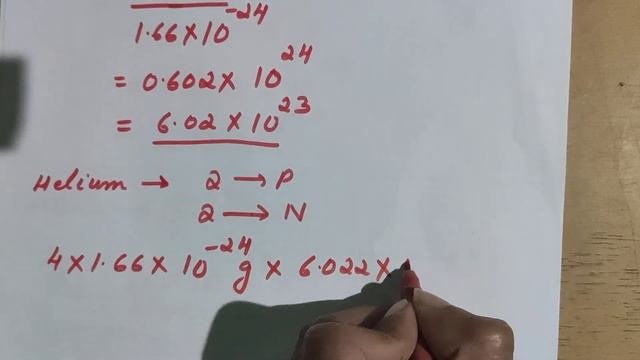 1.66×10⁻²⁴
= 0.602× 10²⁴
= 6.02 × 10²³
Helium → 2 → P
2 → N
4×1.66× 10⁻²⁴g × 6.022×